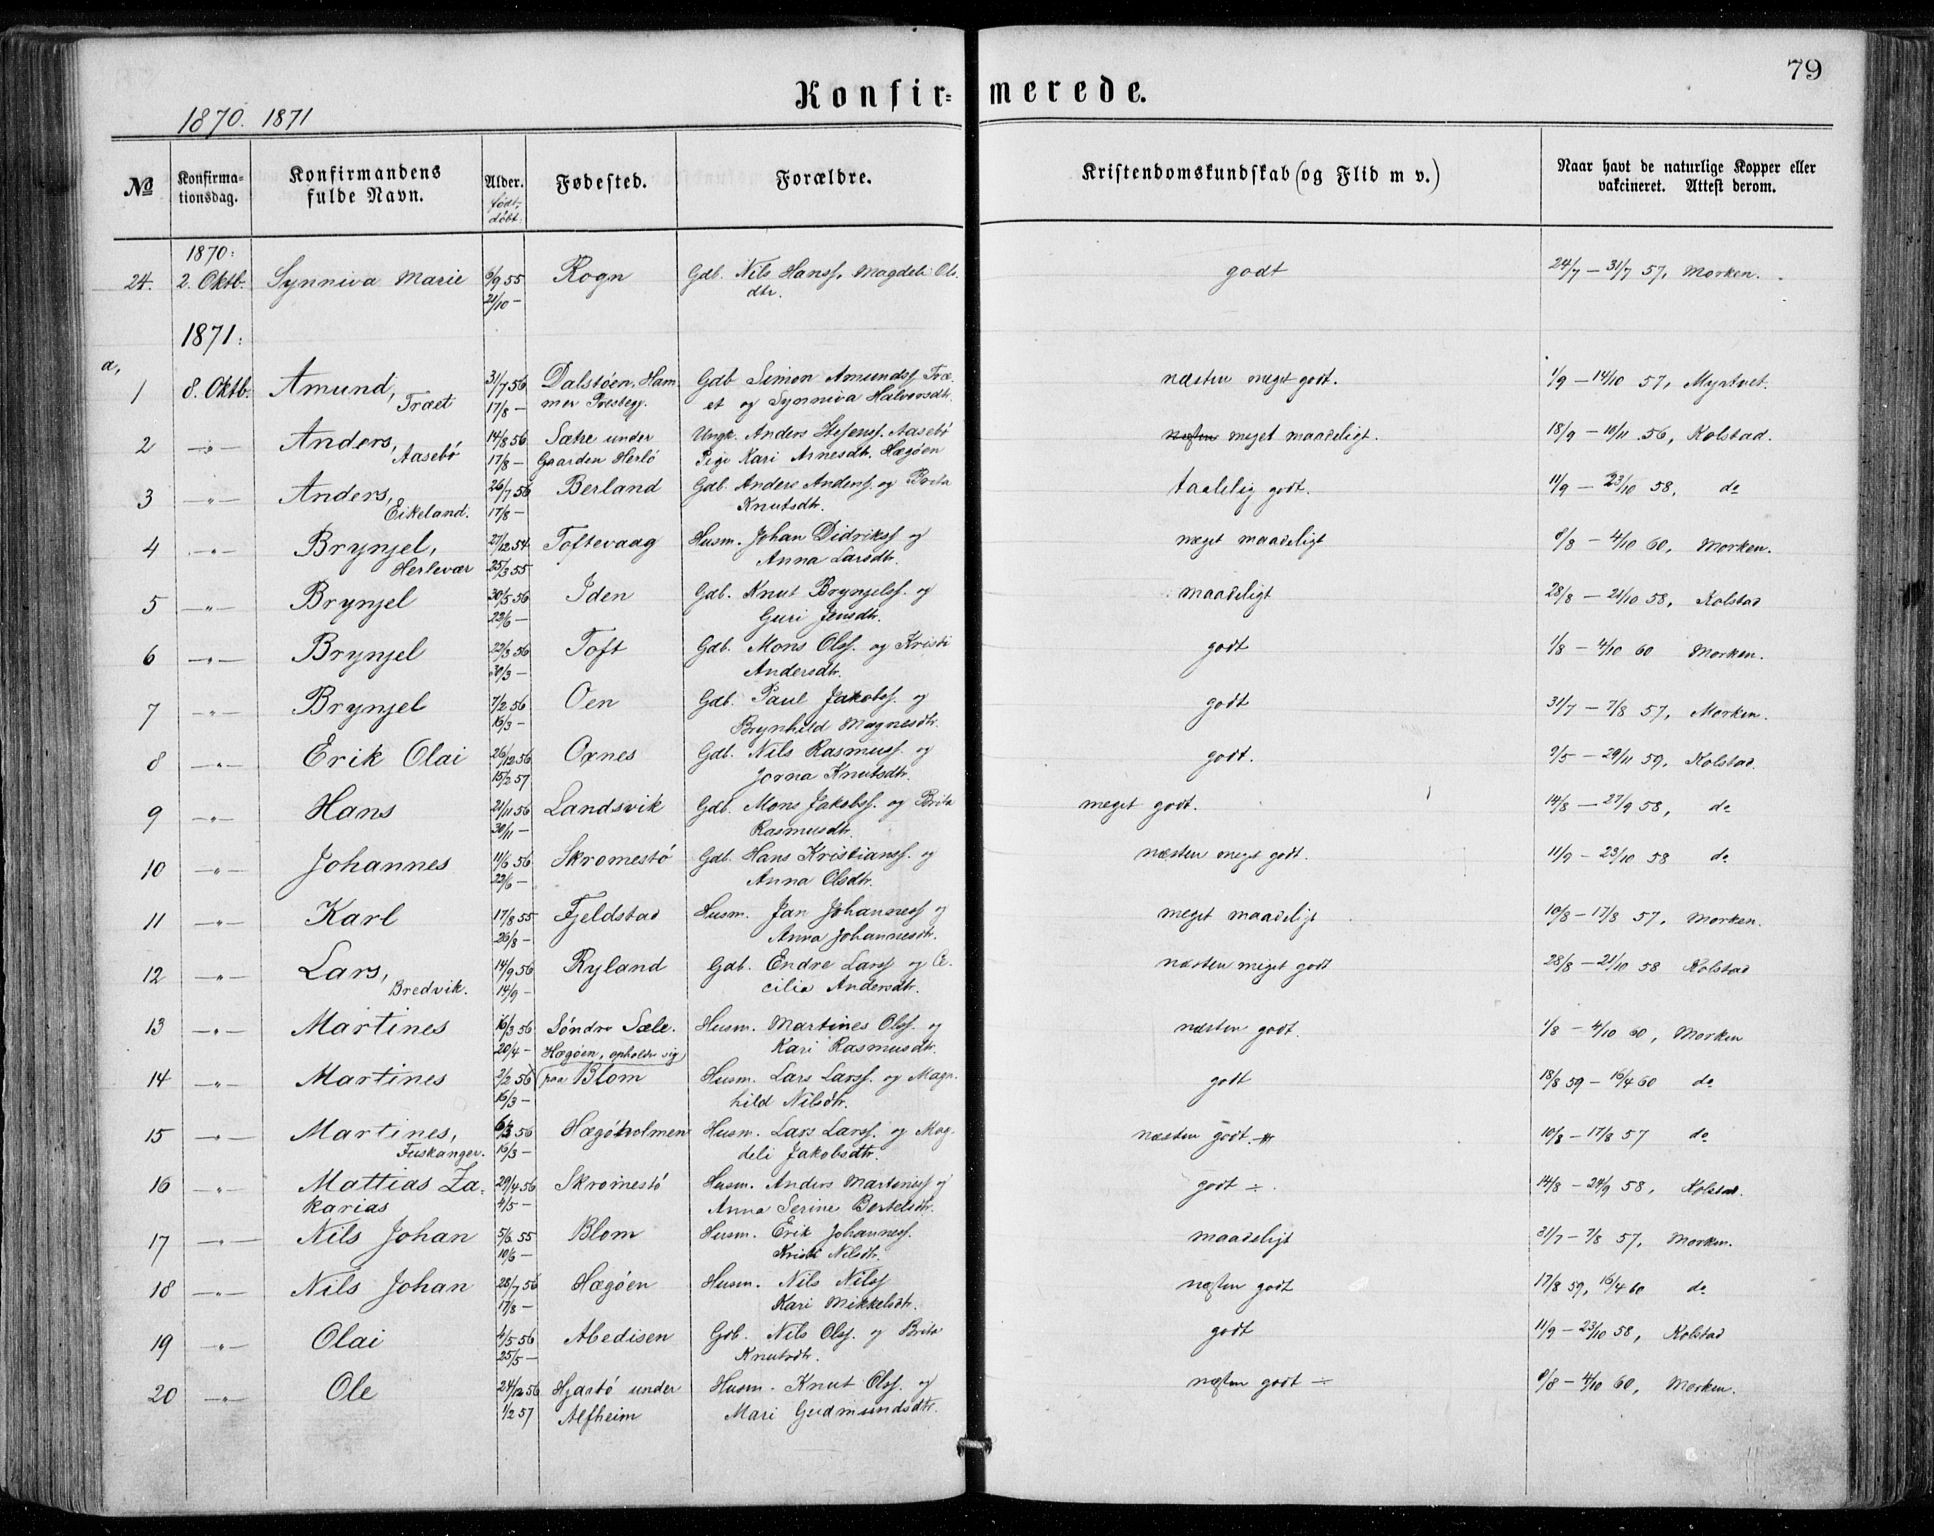 79
Konfirmerede.
1870. 1871
№ Konfirmationsdag. Konfirmandens fulde Navn. Alder. født, døbt: Fødested. Forældre. Kristendomskundskab (og Flid m v.) Naar havt de naturlige Kopper eller vakcineret. Attest derom.
1870:
24. 2. Oktb. Synniva Marie 6/9 55 Rogn Gdb. Nils Hanss, Magdeli Ols- godt 24/7 – 31/7 57, Morken.
21/10 – dtr.
1871:
a,
1 8. Oktb. Amund, 31/7 56 Dalstøen, Ham- Gdb Simon Amundss Træ- næsten meget godt. 1/9 – 14/10 57, Myrtvet.
Træet 17/8 – mer Prestegj. et og Synniva Halvorsdtr.
2 –„– Anders, 14/8 56 Sætre under Ungk. Anders Aasebø næsten meget maadeligt. 18/9 – 10/11 56, Kolstad.
Aasebø 17/8 – Gaarden Herlø Pige Kari Arnesdtr. Hægøen
3 –„– Anders, 26/7 56 Berland Gdb. Anders Anderss. og Brita taalelig godt. 11/9 – 23/10 58, do
Eikeland. 17/8 – Knutsdtr.
4 –„– Brynjel, 27/12 54 Toftevaag Husm. Johan Didrikss og meget maadeligt 8/8 – 4/10 60, Morken.
Herlevær 25/3 55 Anna Larsdtr.
5 –„– Brynjel 30/5 56 Iden Gdb. Knut Brynjelss. og maadeligt 28/8 – 21/10 58, Kolstad
22/6 – Guri Jensdtr.
6 –„– Brynjel 22/3 56 Toft Gdb. Mons Olss. og Kristi godt 1/8 – 4/10 60 Morken.
30/3 – Andersdtr.
7 –„– Brynjel 7/2 56 Oen Gdb. Paul Jakobss. og godt 31/7 – 7/8 57, Morken.
16/3 – Brynhild Magnesdtr.
8 –„– Erik Olai 26/12 56 Oxnes Gdb. Nils Rasmuss. og godt. 9/5 – 29/11 59, Kolstad.
15/2 57 Jorna Knutsdtr.
9 –„– Hans 21/11 56 Landsvik Gdb. Mons Jakobss. og Brita meget godt. 14/8 – 27/9 58, do
30/11 – Rasmusdtr.
10 –„– Johannes 11/6 56 Skromestø Gdb. Hans Kristianss. og næsten meget godt. 11/9 – 23/10 58 do
22/6 – Anna Olsdtr.
11 –„– Karl 17/8 55 Fjeldstad Husm. Jan Johanness og meget maadeligt 10/8 – 17/8 57, Morken.
26/8 – Anna Johannesdtr.
12 –„– Lars, 14/9 56 Ryland Gdb. Endre Larss og Ce- næsten meget godt 28/8 – 21/10 58 Kolstad
Bredvik. 14/9 – cilia Andersdtr.
13 –„– Martines 16/3 56 Søndre Sæle. Husm. Martines Olss. og næsten godt. 1/8 – 4/10 60, Morken
20/4 – Hægøen, opholder sig Kari Rasmusdtr.
14 –„– Martines 2/2 56 paa Blom Husm. Lars Larss. og Mag- godt 18/8 59 – 16/4 60 do
16/3 – hild Nilsdtr.
15 –„– Martines, 6/3 56 Hægøholmen Husm. Lars Larss. og Mag- næsten godt 10/8 – 17/8 57 do
Fuskanger. 16/3 – deli Jakobsdtr.
16 –„– Mattias Za- 29/4 56 Skromestø Husm. Anders Martiness og godt ÷. 14/8 – 24/9 58, Kolstad.
karias 4/5 – Anna Serine Bertelsdtr.
17 –„– Nils Johan 5/6 55 Blom Husm. Erik Johanness. maadeligt 31/7 – 7/8 57, Morken.
10/6 – Kristi Nilsdtr.
18 –„– Nils Johan 28/7 56 Hægøen Husm. Nils Nilss næsten godt 17/8 59, 16/4 60 do
17/8 – Kari Mikkelsdtr.
19 –„– Olai 4/5 56 Abedisen Gdb. Nils Olss. og Brita godt 11/9 – 23/10 58, Kolstad
25/5 – Knutsdtr.
20 –„– Ole 24/12 56 Hjartø under Husm. Knut Olss. og næsten godt ÷ 8/8 – 4/10 60, Morken.
1/2 57 Alfheim Mari Gudmundsdtr.